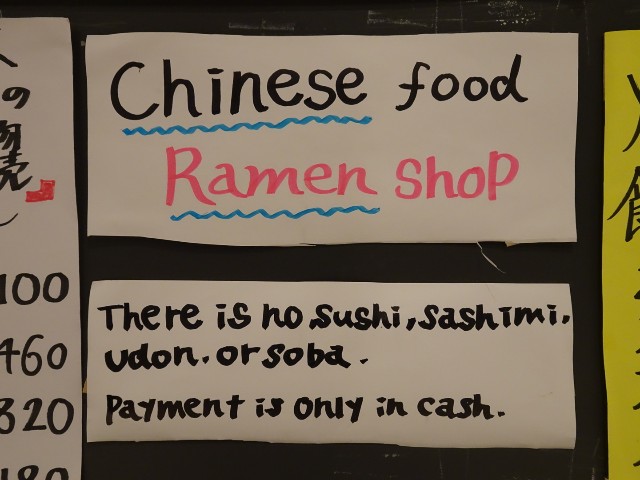 Chinese food
Ramen shop
There is no sushi, sashimi.
udon. or soba.
Payment is only in cash.
の
売
100
460
320